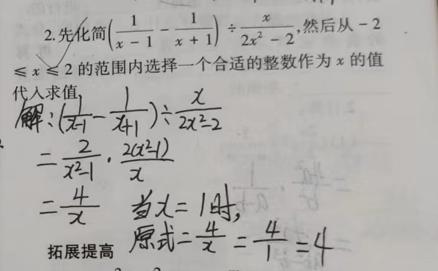 2.先化简(1/(x-1) - 1/(x+1)) ÷ x/(2x²-2),然后从-2
≤x≤2的范围内选择一个合适的整数作为x的值
代入求值.
解:(1/(x-1) - 1/(x+1)) ÷ x/(2x²-2)
= 2/(x²-1) · 2(x²-1)/x
= 4/x 当x=1时,
原式=4/x=4/1=4
拓展提高